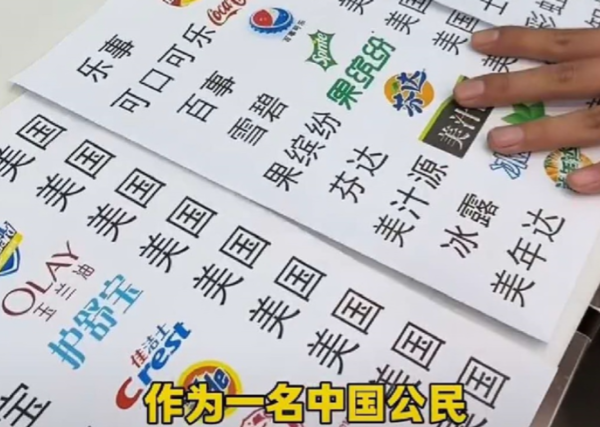 美国
美国
美国
士
彩虹
Coca-Cola
百事可乐
Sprite
果缤纷
芬达
美汁
乐事
可口可乐
百事
雪碧
果缤纷
芬达
美汁源
冰露
美年达
美国
美国
美国
美国
美国
美国
美国
美国
美国
OLAY
玉兰油
护舒宝
佳洁士
Crest
宝
作为一名中国公民